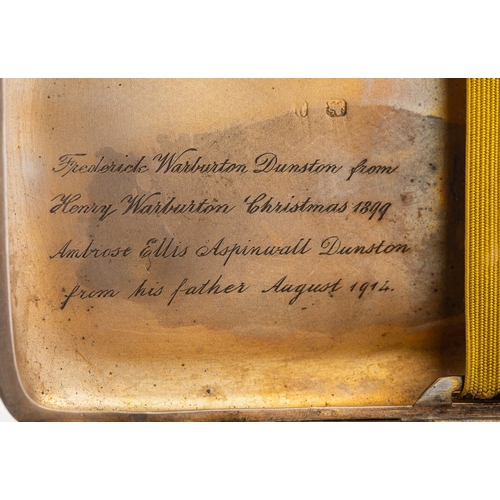 Frederick Warburton Dunston from
Henry Warburton Christmas 1899
Ambrose Ellis Aspinwall Dunston
from his father August 1914.